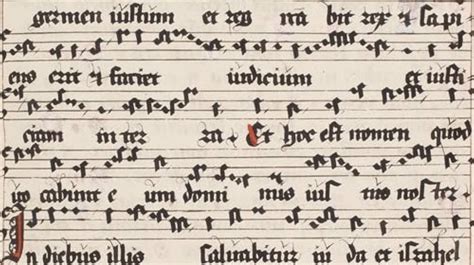 germen iustum et reg na bit rex & sapi
ens erit & faciet iudicium et iusti
ciam in ter ra. Et hoc est nomen quod
uo cabunt e um domi nus ius tus nos ter
In diebus illis saluabitur iu da et israhel